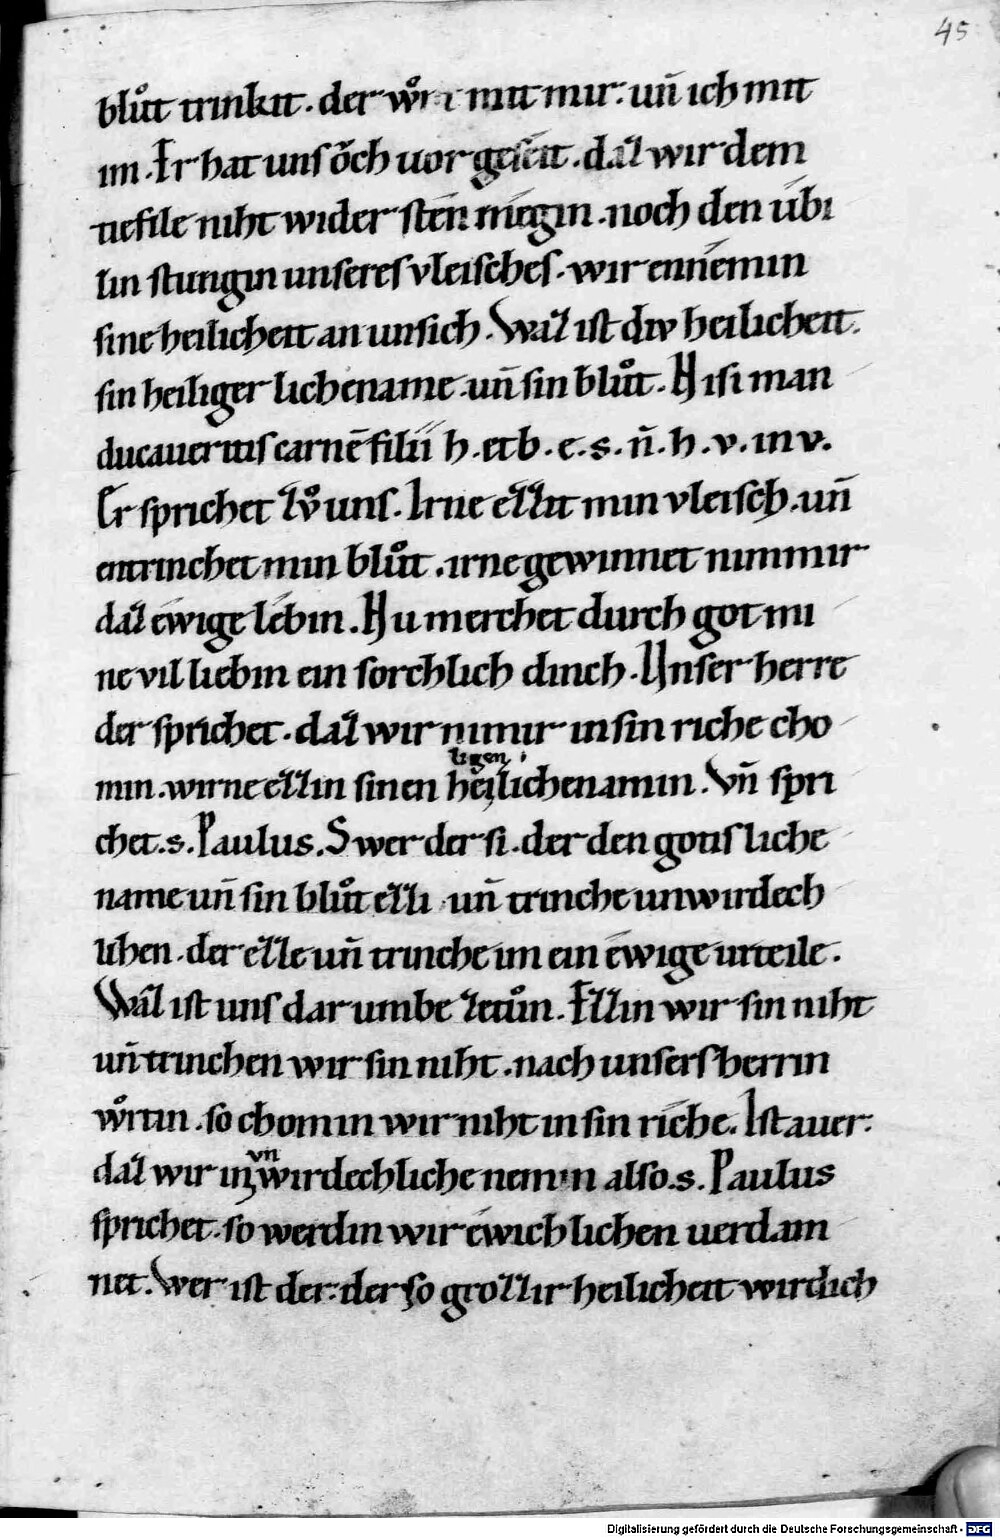 45
blůt trinkit. der wͦn t mit mir. un̄ ich mit
im. Er hat uns ŏch uor geseit. daʒ wir dem
tiefile niht wider sten mėgin. noch den úbi
lin stungin unseres vleisches. wir ennémin
sine heilicheit an unsich. Waʒ ist div heilicheit.
sin heiliger lichename. un̄ sin blůt. Nisi man
ducaueritis carnē filii h. et b. e. s. n̄. h. v. in v.
Er sprichet ʒv̊ uns. Irne eʒʒit min vleisch. un̄
entrinchet min blůt. irne gewinnet nimmir
daʒ éwige lébin. Nu merchet durch got mi
ne vil liebin ein sorchlich dinch. Unser herre
der sprichet. daʒ wir nimir in sin riche cho
min. wirne eʒʒin sinen heilichenamin. Vn̄ spri
ligen
chet. s. Paulus. Swer der si. der den gotis liche
name un̄ sin blůt eʒʒi un̄ trinche unwirdech
lihen. der eʒʒe un̄ trinche im ein éwige urteile.
Waʒ ist uns dar umbe ʒetůn. Eʒʒin wir sin niht
un̄ trinchen wir sin niht. nach unsers herrin
wͦrtin. so chomin wir niht in sin riche. Ist auer.
daʒ wir inʒ wirdechliche nemin also. s. Paulus
vn
sprichet. so werdin wir éwichlichen uerdam
net. Wer ist der. der so groʒʒir heilicheit wirdich
Digitalisierung gefördert durch die Deutsche Forschungsgemeinschaft - DFG